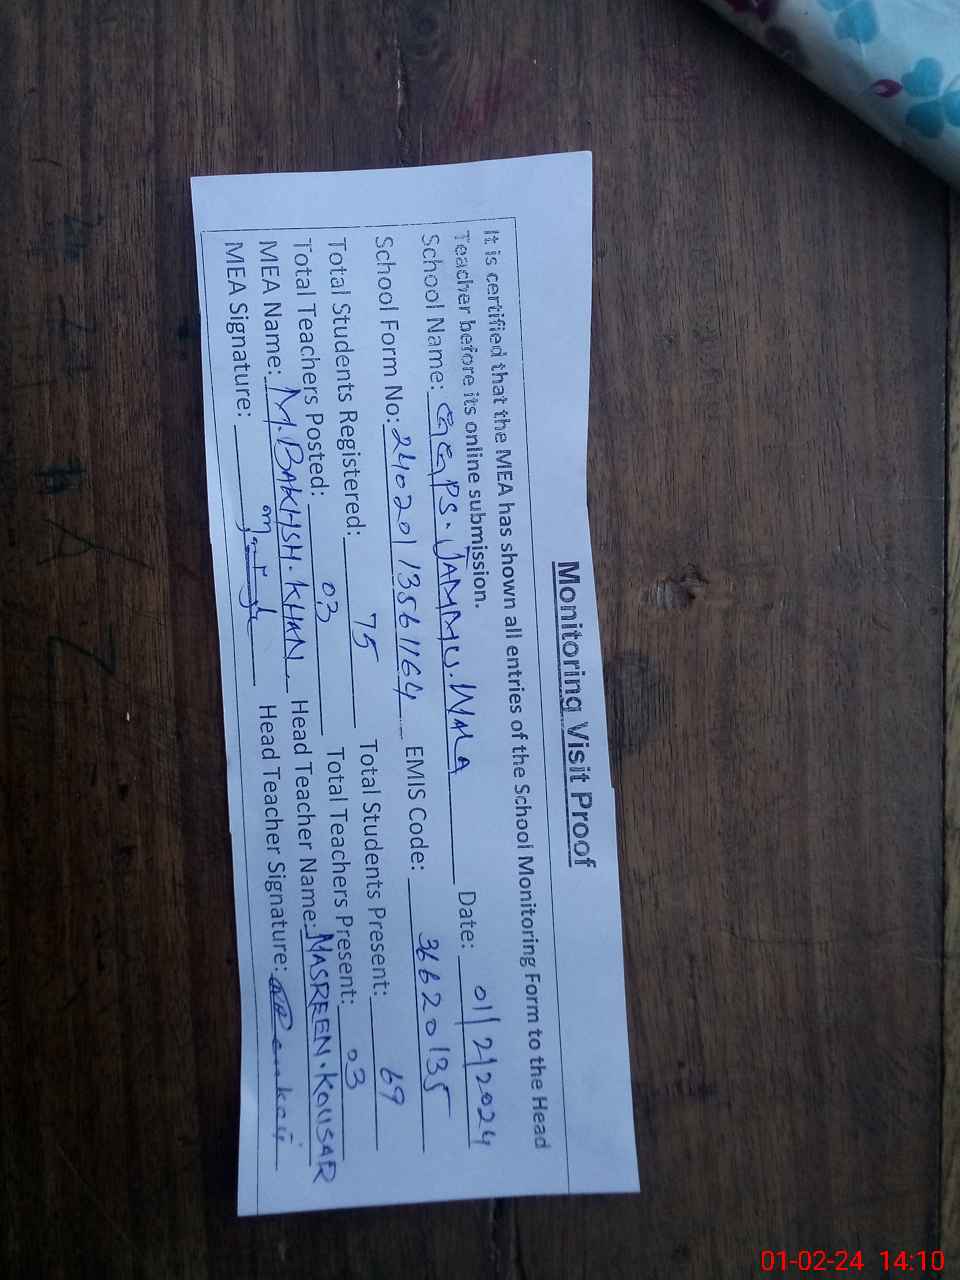 Monitoring Visit Proof
It is certified that the MEA has shown all entries of the School Monitoring Form to the Head
Teacher before its online submission.
School Name: GGPS. JAMMU. WALA Date: 01/2/2024
School Form No: 240201356 1164 EMIS Code: 36620135
Total Students Registered: 75 Total Students Present: 69
Total Teachers Posted: 03 Total Teachers Present: 03
MEA Name: M. BAKHSH. KHAN Head Teacher Name: NASREEN. KOUSAR
MEA Signature: Head Teacher Signature:
01-02-24 14:10